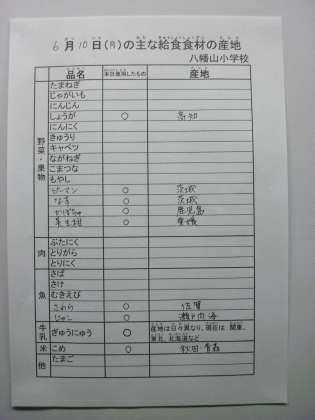 6月10日(月)の主な給食食材の産地
八幡山小学校
品名 本日使用したもの 産地
野菜・果物
たまねぎ
じゃがいも
にんじん
しょうが ○ 高知
にんにく
きゅうり
キャベツ
ながねぎ
こまつな
もやし
ピーマン ○ 茨城
なす ○ 茨城
かぼちゃ ○ 鹿児島
美生柑 ○ 愛媛
肉
ぶたにく
とりがら
とりにく
魚
さば
さけ
むきえび
さわら ○ 佐賀
じゃこ ○ 瀬戸内海
牛乳 ぎゅうにゅう ○ 産地は日々異なり、現在は、関東、東北、北海道など
米 こめ ○ 秋田・青森
他 たまご